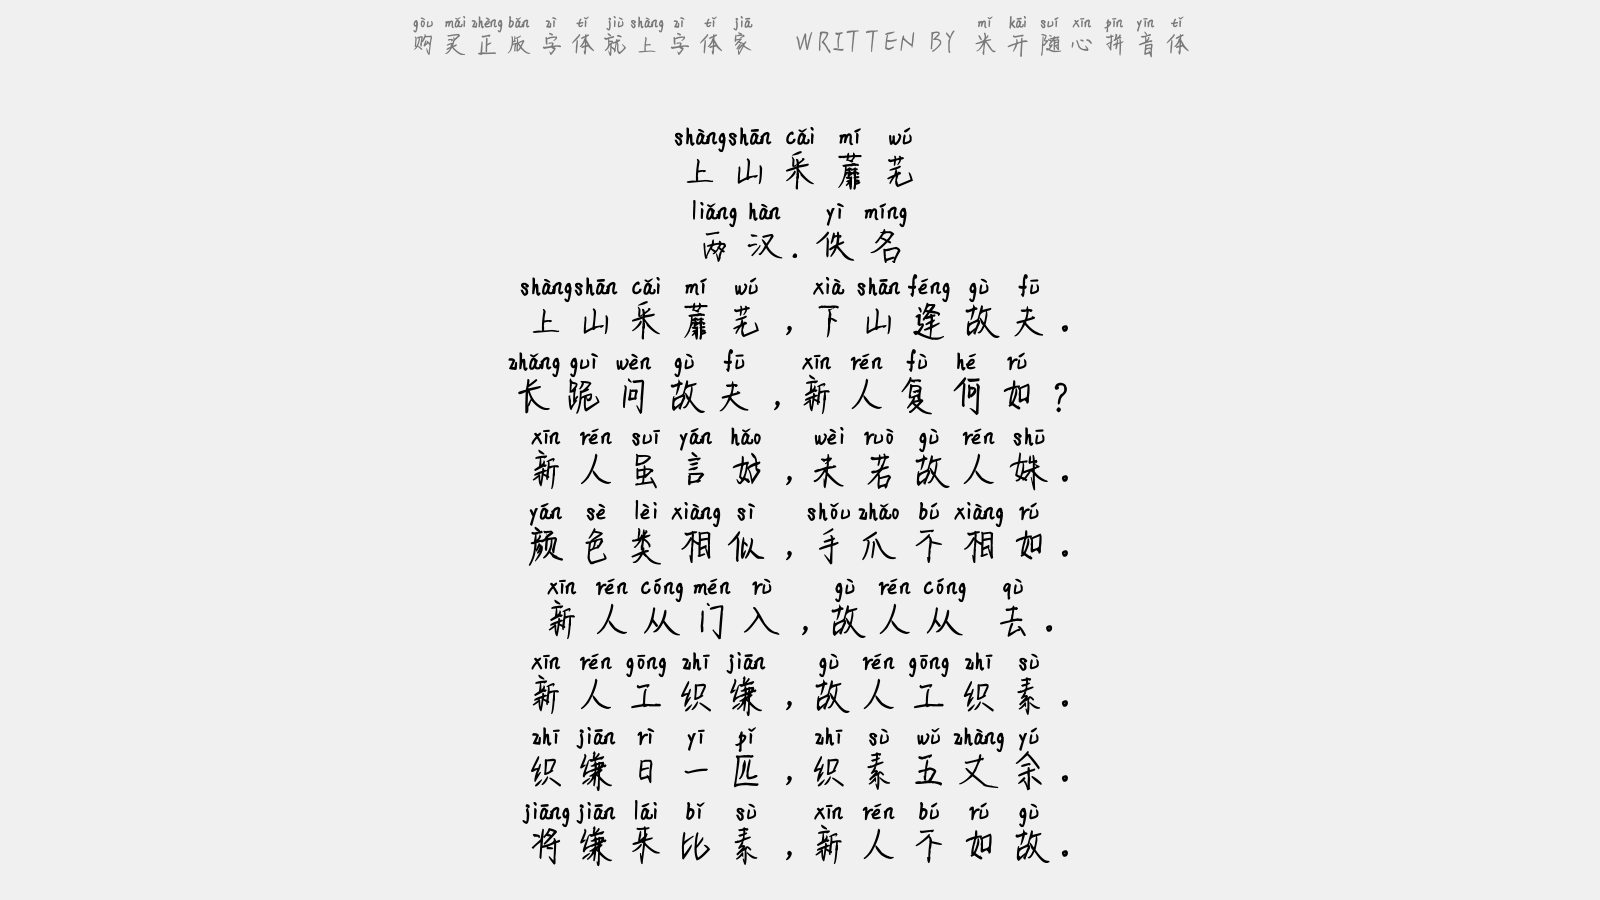 gòu mǎi zhèng bǎn zì tǐ jiù shàng zì tǐ jiā mǐ kāi suí xīn pīn yīn tǐ
购灵正版字体就上字体家 WRITTEN BY 米开随心拼音体
shàng shān cǎi mí wú
上山采蘼芜
liǎng hàn yì míng
两汉.佚名
shàng shān cǎi mí wú xià shān féng gù fū
上山采蘼芜，下山逢故夫。
zhǎng guì wèn gù fū xīn rén fù hé rú
长跪问故夫，新人复何如？
xīn rén suī yán hǎo wèi ruò gù rén shū
新人虽言好，未若故人姝。
yán sè lèi xiàng sì shǒu zhǎo bú xiàng rú
颜色类相似，手爪不相如。
xīn rén cóng mén rù gù rén cóng qù
新人从门入，故人从 去。
xīn rén gōng zhī jiān gù rén gōng zhī sù
新人工织缣，故人工织素。
zhī jiān rì yī pǐ zhī sù wǔ zhàng yú
织缣日一匹，织素五丈余。
jiāng jiān lái bǐ sù xīn rén bú rú gù
将缣来比素，新人不如故。